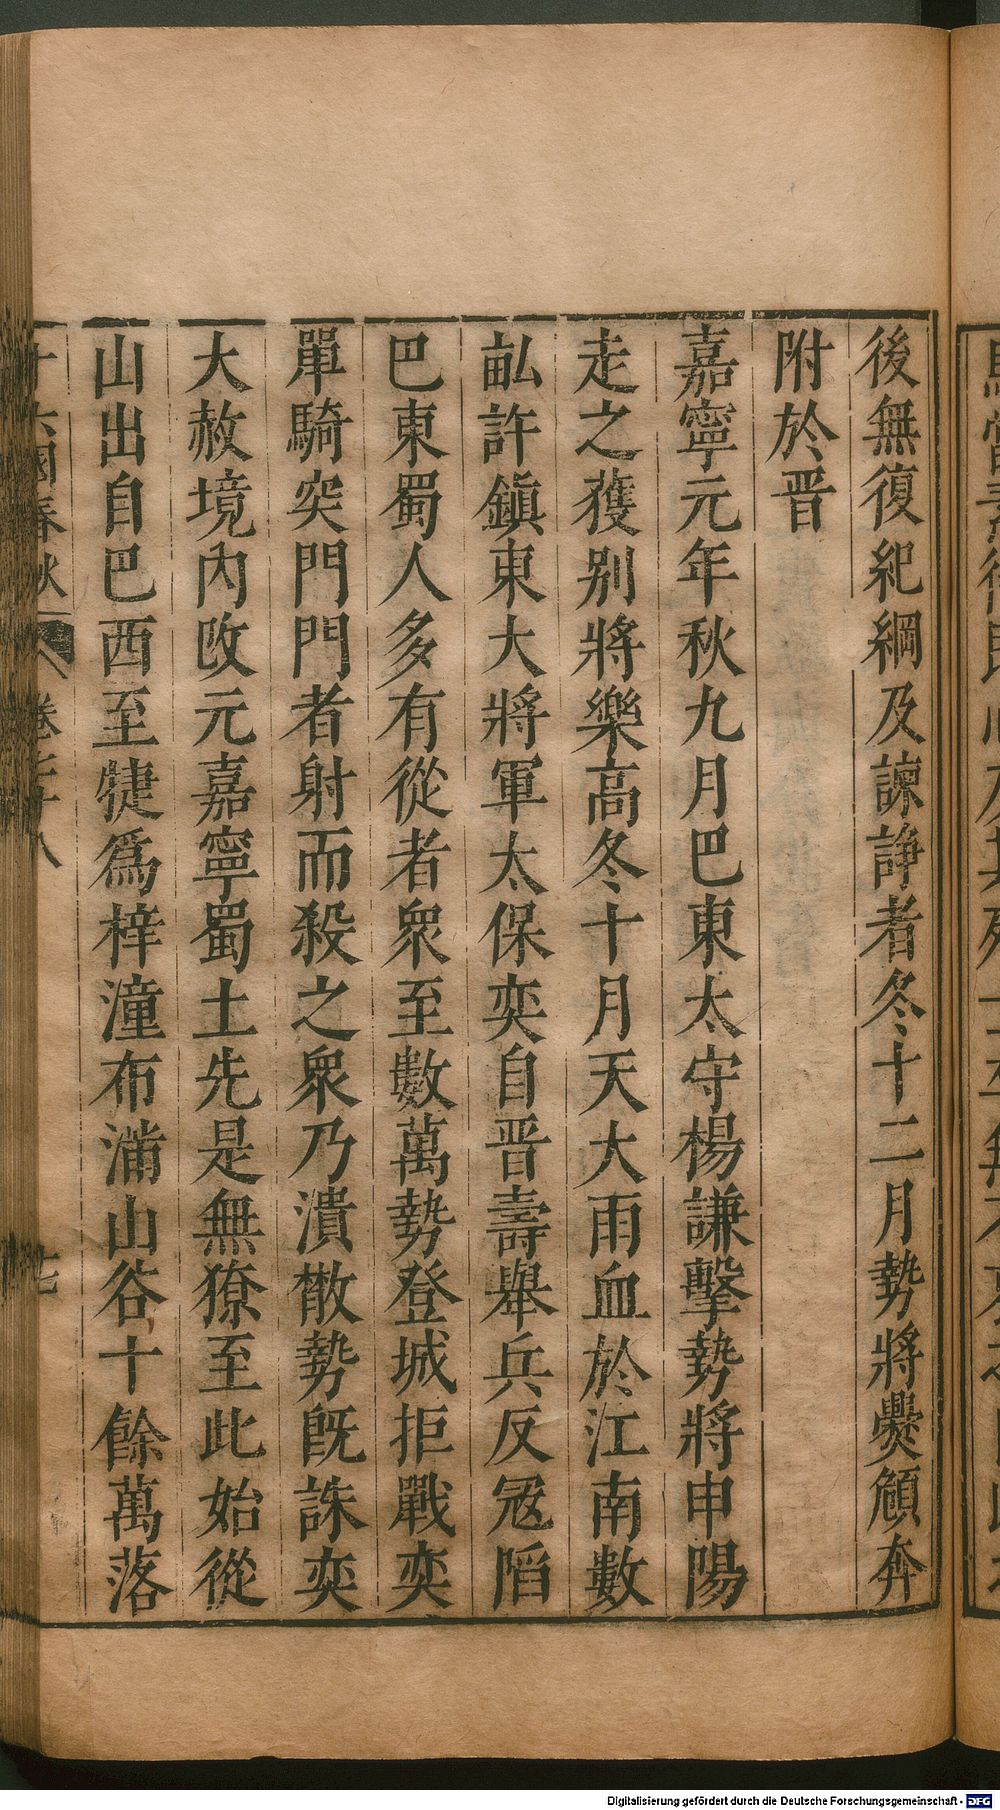 後無復紀綱及諫諍者冬十二月勢將爨頠奔
附於晋
嘉寧元年秋九月巴東太守楊謙擊勢將申陽
走之獲别將樂高冬十月天大雨血於江南數
畝許鎮東大將軍太保奕自晋壽舉兵反冦䧟
巴東蜀人多有從者衆至數萬勢登城拒戰奕
單騎突門門者射而殺之衆乃潰散勢既誅奕
大赦境内改元嘉寧蜀土先是無獠至此始從
山出自巴西至犍爲梓潼布滿山谷十餘萬落
十六國春秋 卷七十八 十七
Digitalisierung gefördert durch die Deutsche Forschungsgemeinschaft - DFG